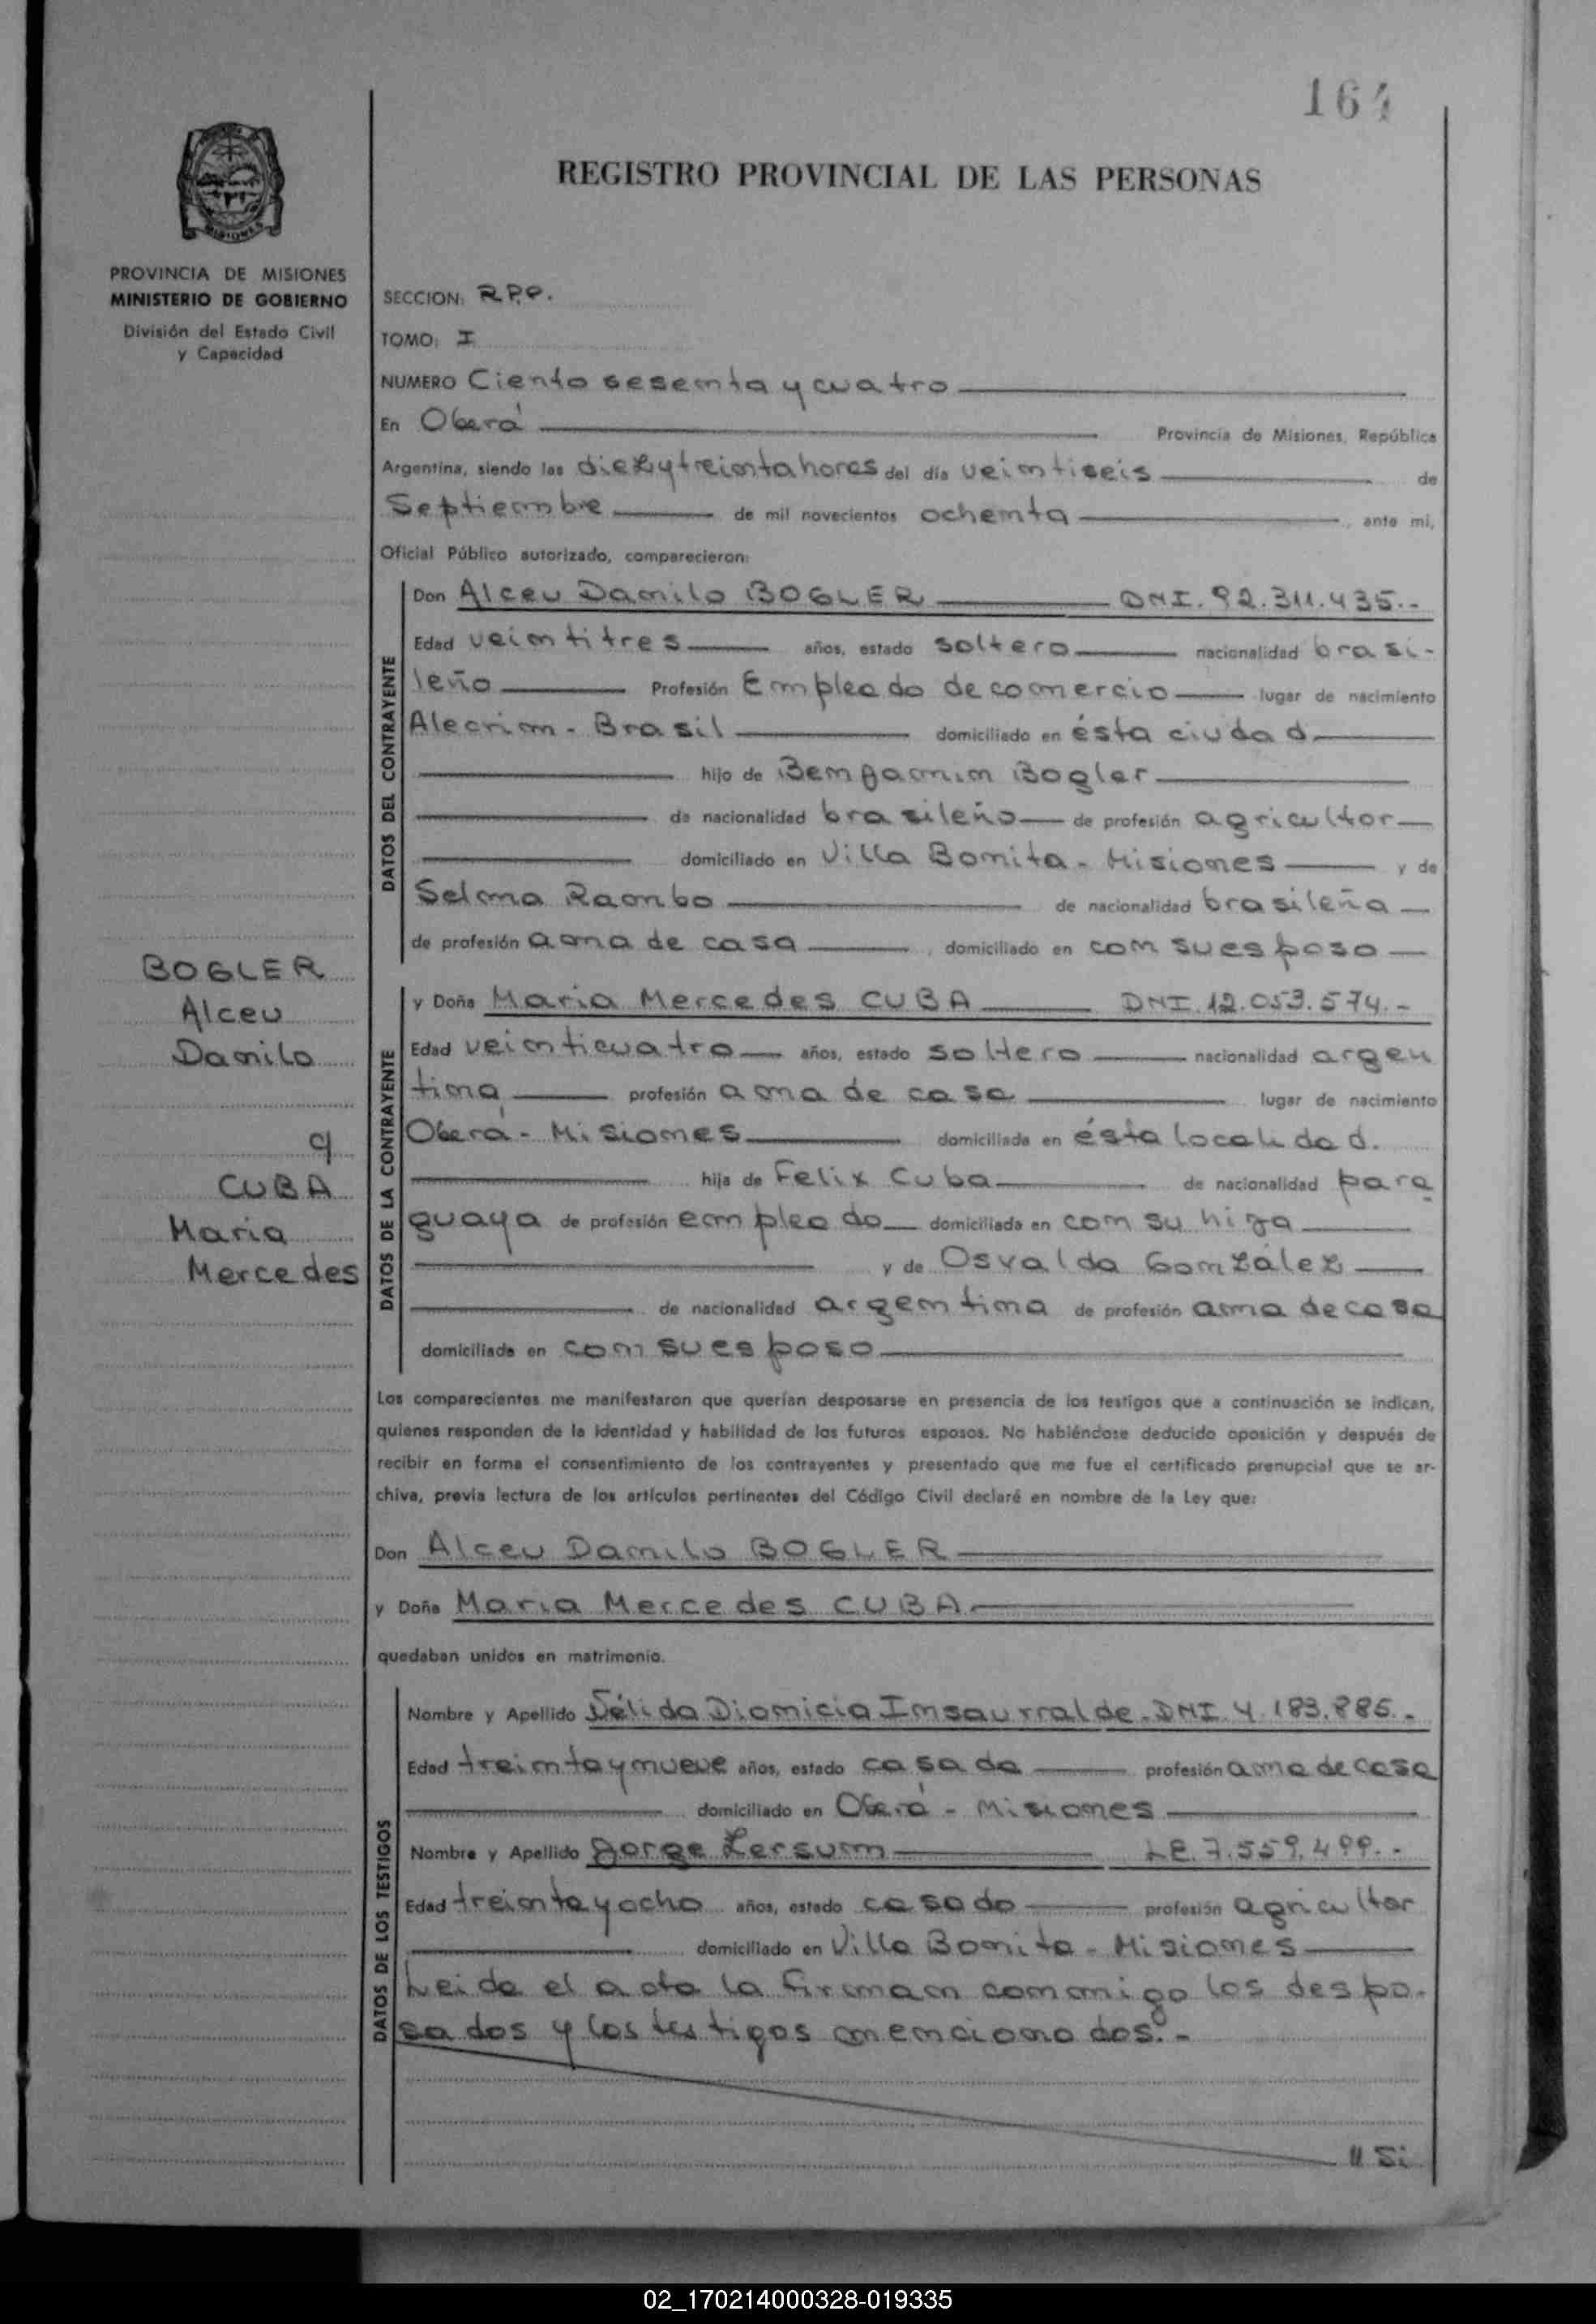 164
REGISTRO PROVINCIAL DE LAS PERSONAS
MISIONES
PROVINCIA DE MISIONES
MINISTERIO DE GOBIERNO
División del Estado Civil
y Capacidad
SECCION: R.P.P.
TOMO: I
NUMERO Ciento sesenta y cuatro
En Oberá Provincia de Misiones, República
Argentina, siendo las diez y treinta horas del día veintiseis de
Septiembre de mil novecientos ochenta, ante mí,
Oficial Público autorizado, comparecieron:
DATOS DEL CONTRAYENTE
Don Alceu Danilo BOGLER DNI. 92.311.435.-
Edad veintitres años, estado soltero nacionalidad brasi-
leño Profesión Empleado de comercio lugar de nacimiento
Alecrim - Brasil domiciliado en ésta ciudad.
hijo de Benjamin Bogler
de nacionalidad brasileño de profesión agricultor
domiciliado en Villa Bonita - Misiones y de
Selma Rambo de nacionalidad brasileña
de profesión ama de casa, domiciliado en con su esposo
BOGLER
Alceu
Danilo
y
CUBA
Maria
Mercedes
DATOS DE LA CONTRAYENTE
y Doña Maria Mercedes CUBA DNI. 12.053.574.-
Edad veinticuatro años, estado soltero nacionalidad argen
tina profesión ama de casa lugar de nacimiento
Oberá - Misiones domiciliada en ésta localidad.
hija de Felix Cuba de nacionalidad para
guaya de profesión empleado domiciliada en con su hija
y de Osvalda González
de nacionalidad argentina de profesión ama de casa
domiciliada en con su esposo
Los comparecientes me manifestaron que querían desposarse en presencia de los testigos que a continuación se indican,
quienes responden de la identidad y habilidad de los futuros esposos. No habiéndose deducido oposición y después de
recibir en forma el consentimiento de los contrayentes y presentado que me fue el certificado prenupcial que se ar-
chiva, previa lectura de los artículos pertinentes del Código Civil declaré en nombre de la Ley que:
Don Alceu Danilo BOGLER
y Doña Maria Mercedes CUBA
quedaban unidos en matrimonio.
DATOS DE LOS TESTIGOS
Nombre y Apellido Délida Dionicia Insaurralde. DNI. 4.183.885.-
Edad treinta y nueve años, estado casada profesión ama de casa
domiciliado en Oberá - Misiones
Nombre y Apellido Jorge Lersum LE. 7.559.499.-
Edad treinta y ocho años, estado casado profesión agricultor
domiciliado en Villa Bonita - Misiones
Leida el acta la firman conmigo los despo-
sados y los testigos mencionados.-
" Si
02_170214000328-019335